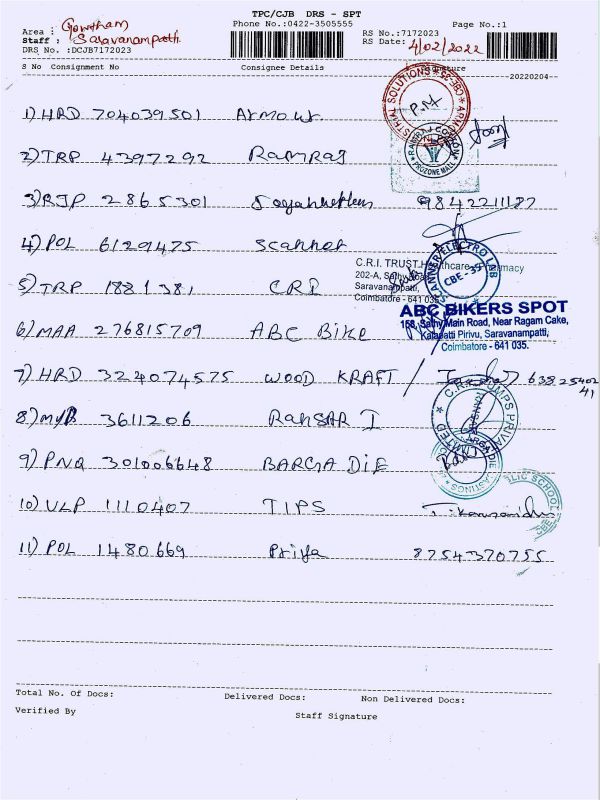 TPC/CJB DRS - SPT
Phone No.:0422-3505555 Page No.:1
Area : Gowtham
Staff : Saravanampatti
RS No.:7172023
RS Date: 4/02/2022
DRS No. :DCJB7172023
S No Consignment No Consignee Details Signature
20220204
1) HRD 704039501 Armour
2) TRP 4397292 Ramraj
3) RJP 2865301 9842211187
4) POL 6129475 Scanner
C.R.I. TRUST Healthcare Pharmacy
202-A, Sathy Road
Saravanampatti,
Coimbatore - 641 035
5) TRP 1881381 CRI
ABC BIKERS SPOT
158, Sathy Main Road, Near Ragam Cake,
Kalapatti Pirivu, Saravanampatti,
Coimbatore - 641 035.
6) MAA 276815709 ABC Bike
7) HRD 324074575 WOOD KRAFT / 6382540241
8) MYB 3611206 RANSAR I
9) PNQ 301006648 BARGIA DIE
10) VLP 1110407 TIPS
11) POL 1480669 Priya 8754370755
Total No. Of Docs: Delivered Docs: Non Delivered Docs:
Verified By Staff Signature